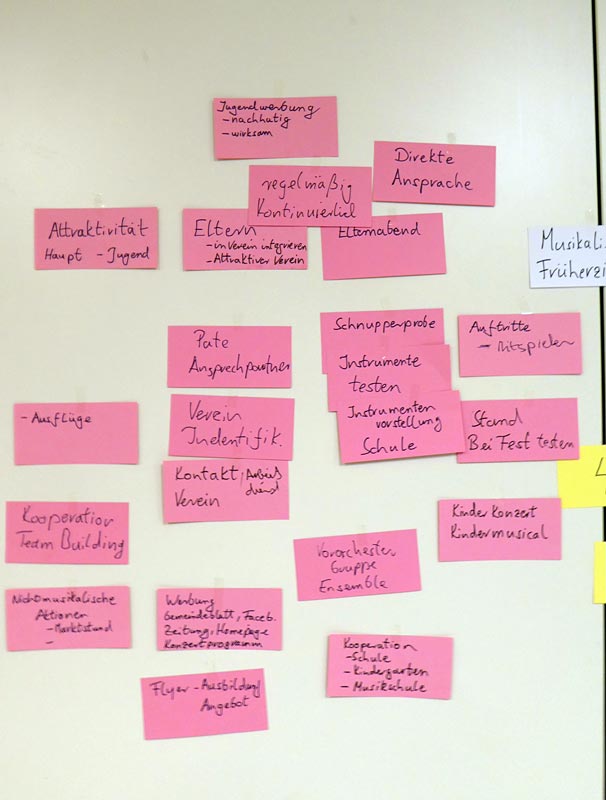 Jugendwerbung
- nachhatig
- wirksam
Direkte
Ansprache
regelmäßig
Kontinuierlich
Attraktivität
Haupt - Jugend
Eltern
- in Verein integrieren
- Attraktiver Verein
Elternabend
Musikali
Früherzi
Pate
Ansprechpartner
Schnupperprobe
Instrumente
testen
Instrumenten
vorstellung
Schule
Auftritte
- Mitspielen
- Ausflüge
Verein
Indentifik.
Stand
Bei Fest testen
Kontakt, Arbeits
dienst
Verein
Kooperation
Team Building
Kinder Konzert
Kindermusical
Vororchester
Gruppe
Ensemble
Nichtmusikalische
Aktionen
- Marktstand
-
Werbung
Gemeindeblatt, Faceb.
Zeitung, Homepage
Konzertprogramm
Kooperation
- Schule
- Kindergarten
- Musikschule
Flyer - Ausbildung
Angebot